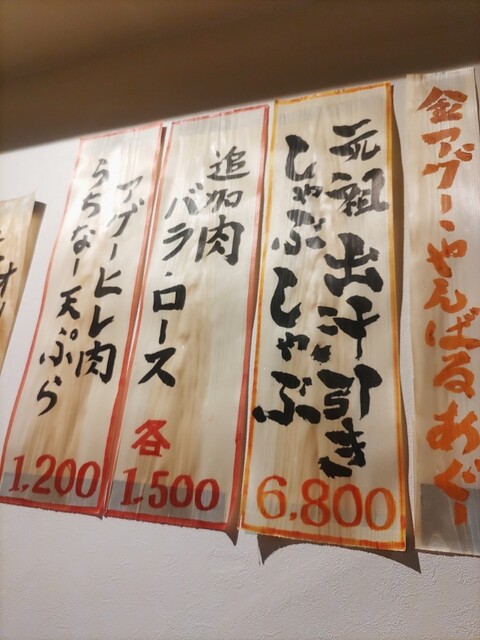 金アグー・やんばるあぐー
元祖 出汁引き
しゃぶしゃぶ
6,800
追加肉
バラ・ロース
各
1,500
アグーヒレ肉
うちなー天ぷら
1,200